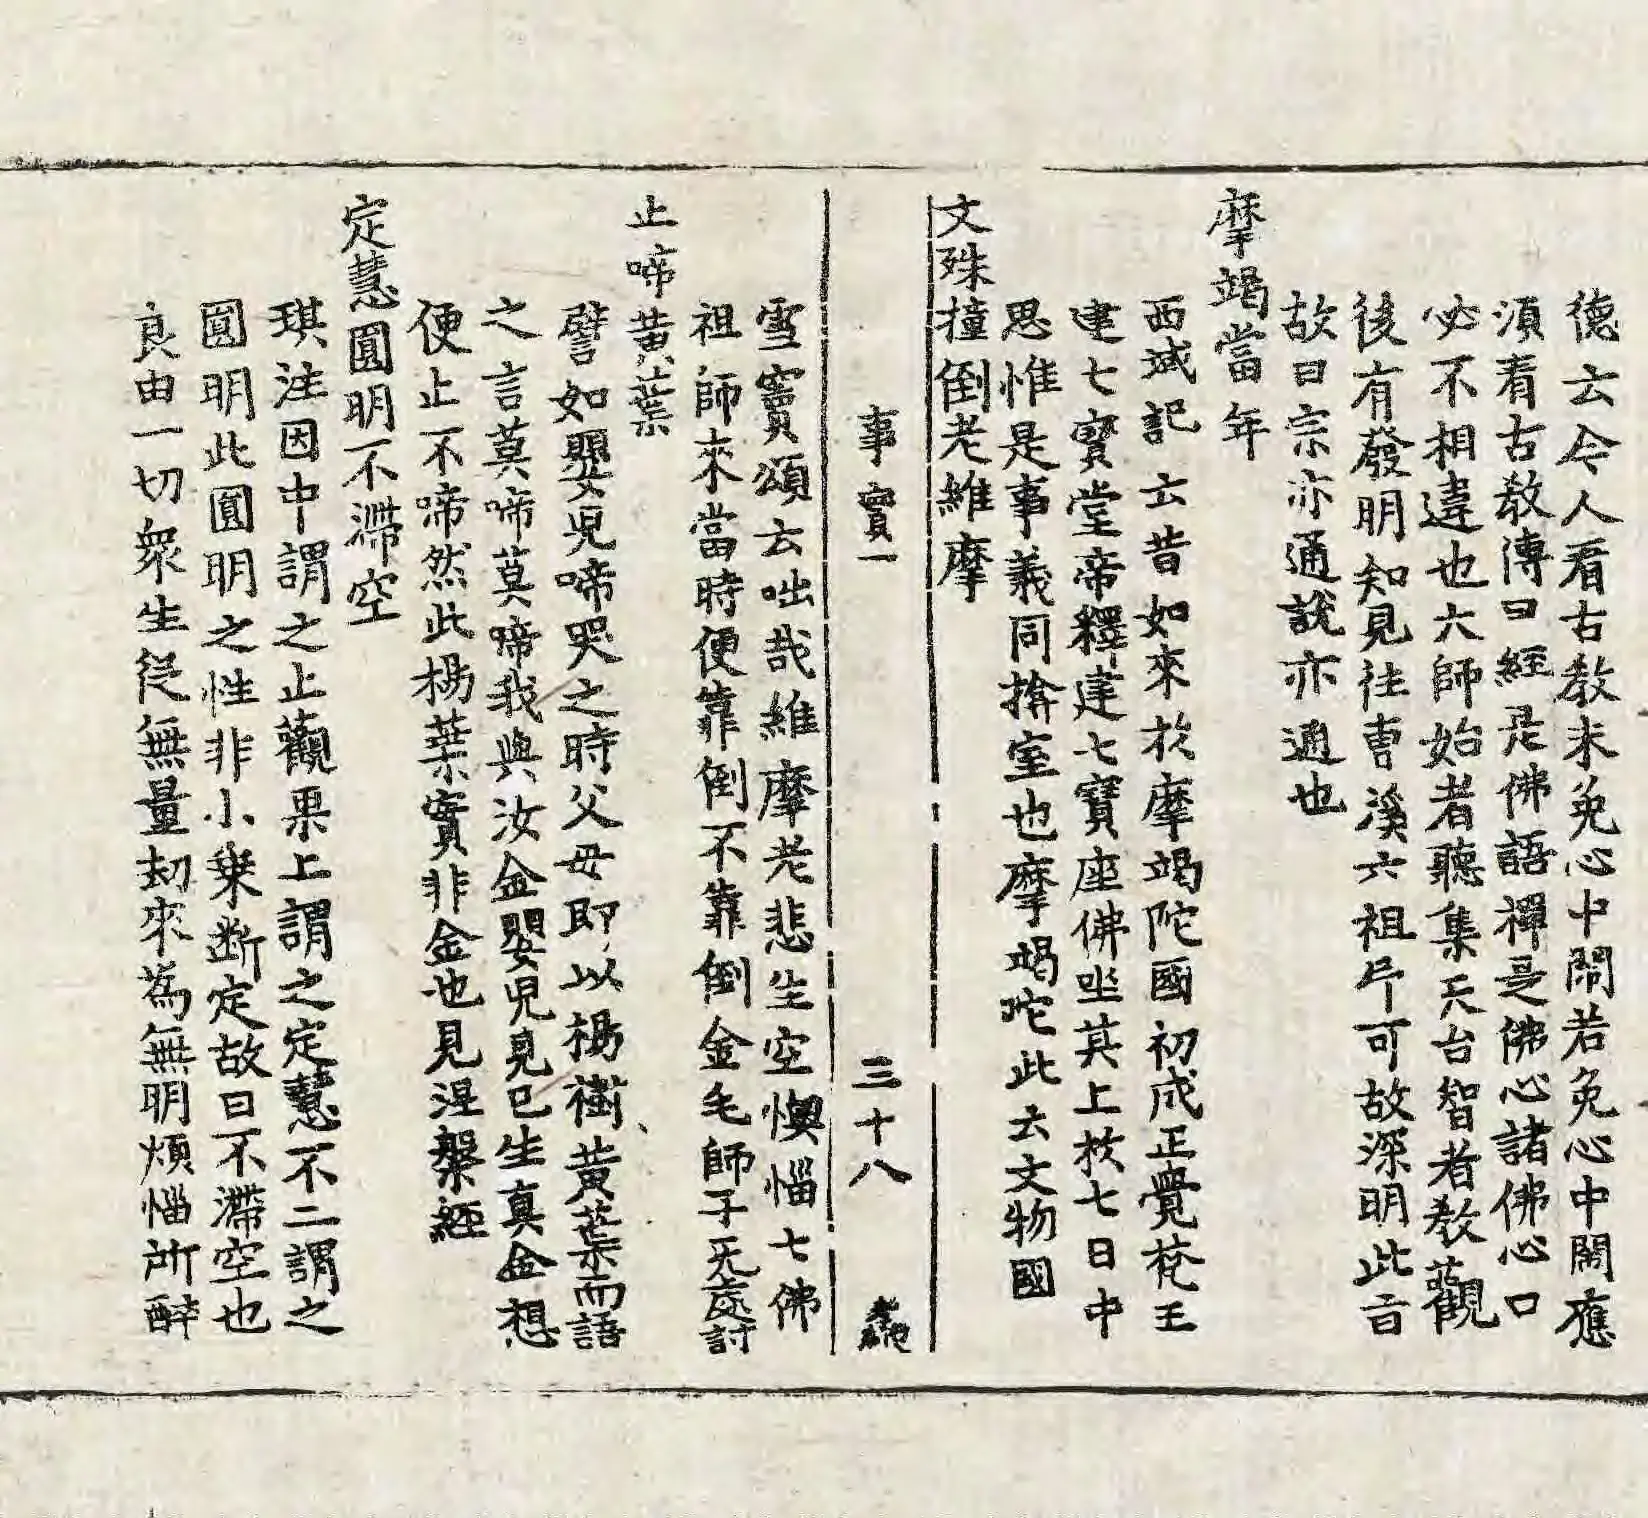 德云今人看古教未免心中鬧若免心中鬧應
須看古教傳曰經是佛語禪是佛心諸佛心口
必不相違也六師始者聽集天台智者教觀
後有發明知見往曹溪六祖印可故深明此旨
故曰宗亦通說亦通也
摩竭當年
西域記云昔如來於摩竭陀國初成正覺梵王
建七寶堂帝釋建七寶座佛坐其上於七日中
思惟是事義同揜室也摩竭陀此云文物國
文殊撞倒老維摩
事實一 三十八
雪竇頌云咄哉維摩老悲生空懊惱七佛
祖師來當時便靠倒不靠倒金毛師子无處討
止啼黃葉
譬如嬰兒啼哭之時父母即以楊樹黃葉而語
之言莫啼莫啼我與汝金嬰兒見已生真金想
便止不啼然此楊葉實非金也見涅槃經
定慧圓明不滯空
琪注因中謂之止觀果上謂之定慧不二謂之
圓明此圓明之性非小乗断定故曰不滯空也
良由一切衆生從無量劫來為無明煩惱所醉